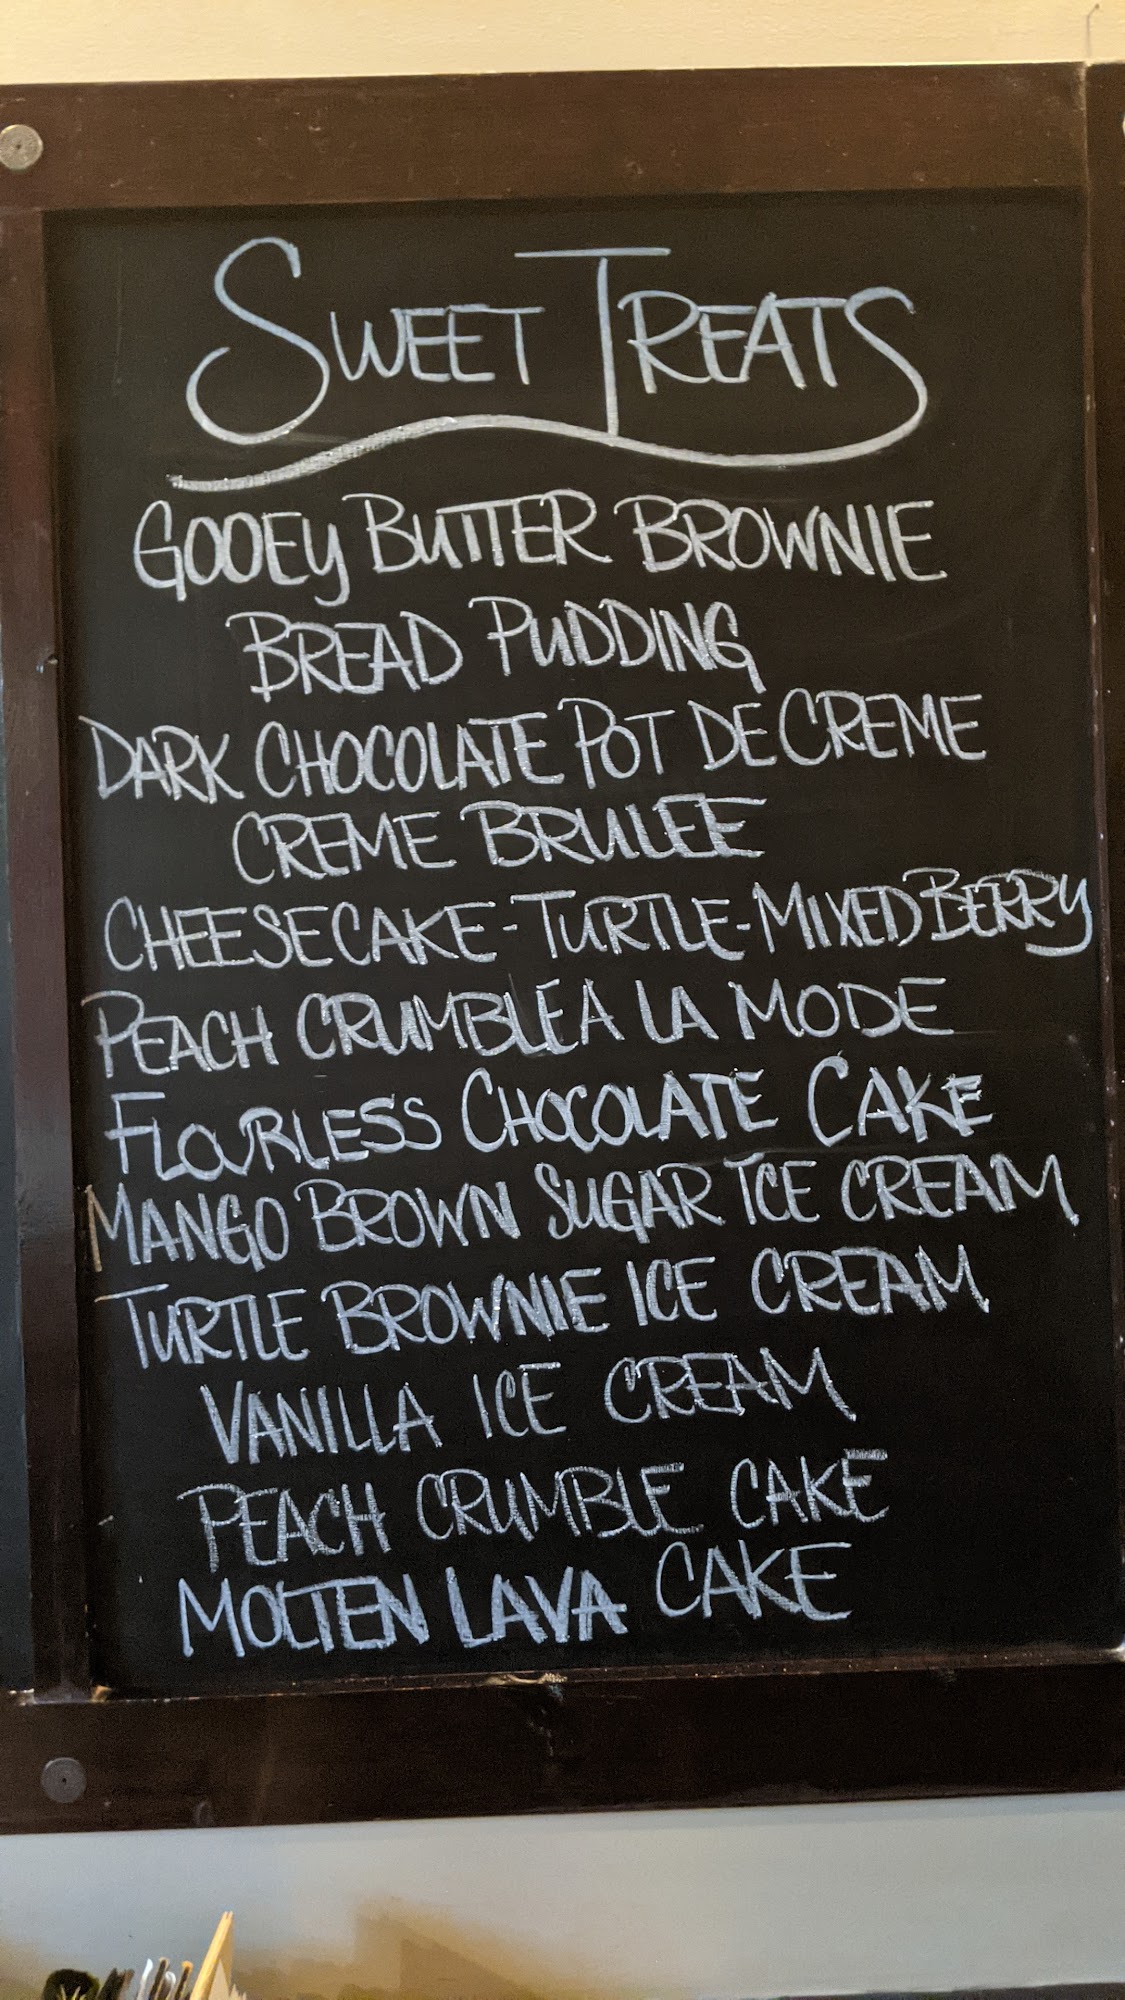 SWEET TREATS
GOOEY BUTTER BROWNIE
BREAD PUDDING
DARK CHOCOLATE POT DE CREME
CREME BRULEE
CHEESECAKE-TURTLE-MIXED BERRY
PEACH CRUMBLE A LA MODE
FLOURLESS CHOCOLATE CAKE
MANGO BROWN SUGAR ICE CREAM
TURTLE BROWNIE ICE CREAM
VANILLA ICE CREAM
PEACH CRUMBLE CAKE
MOLTEN LAVA CAKE